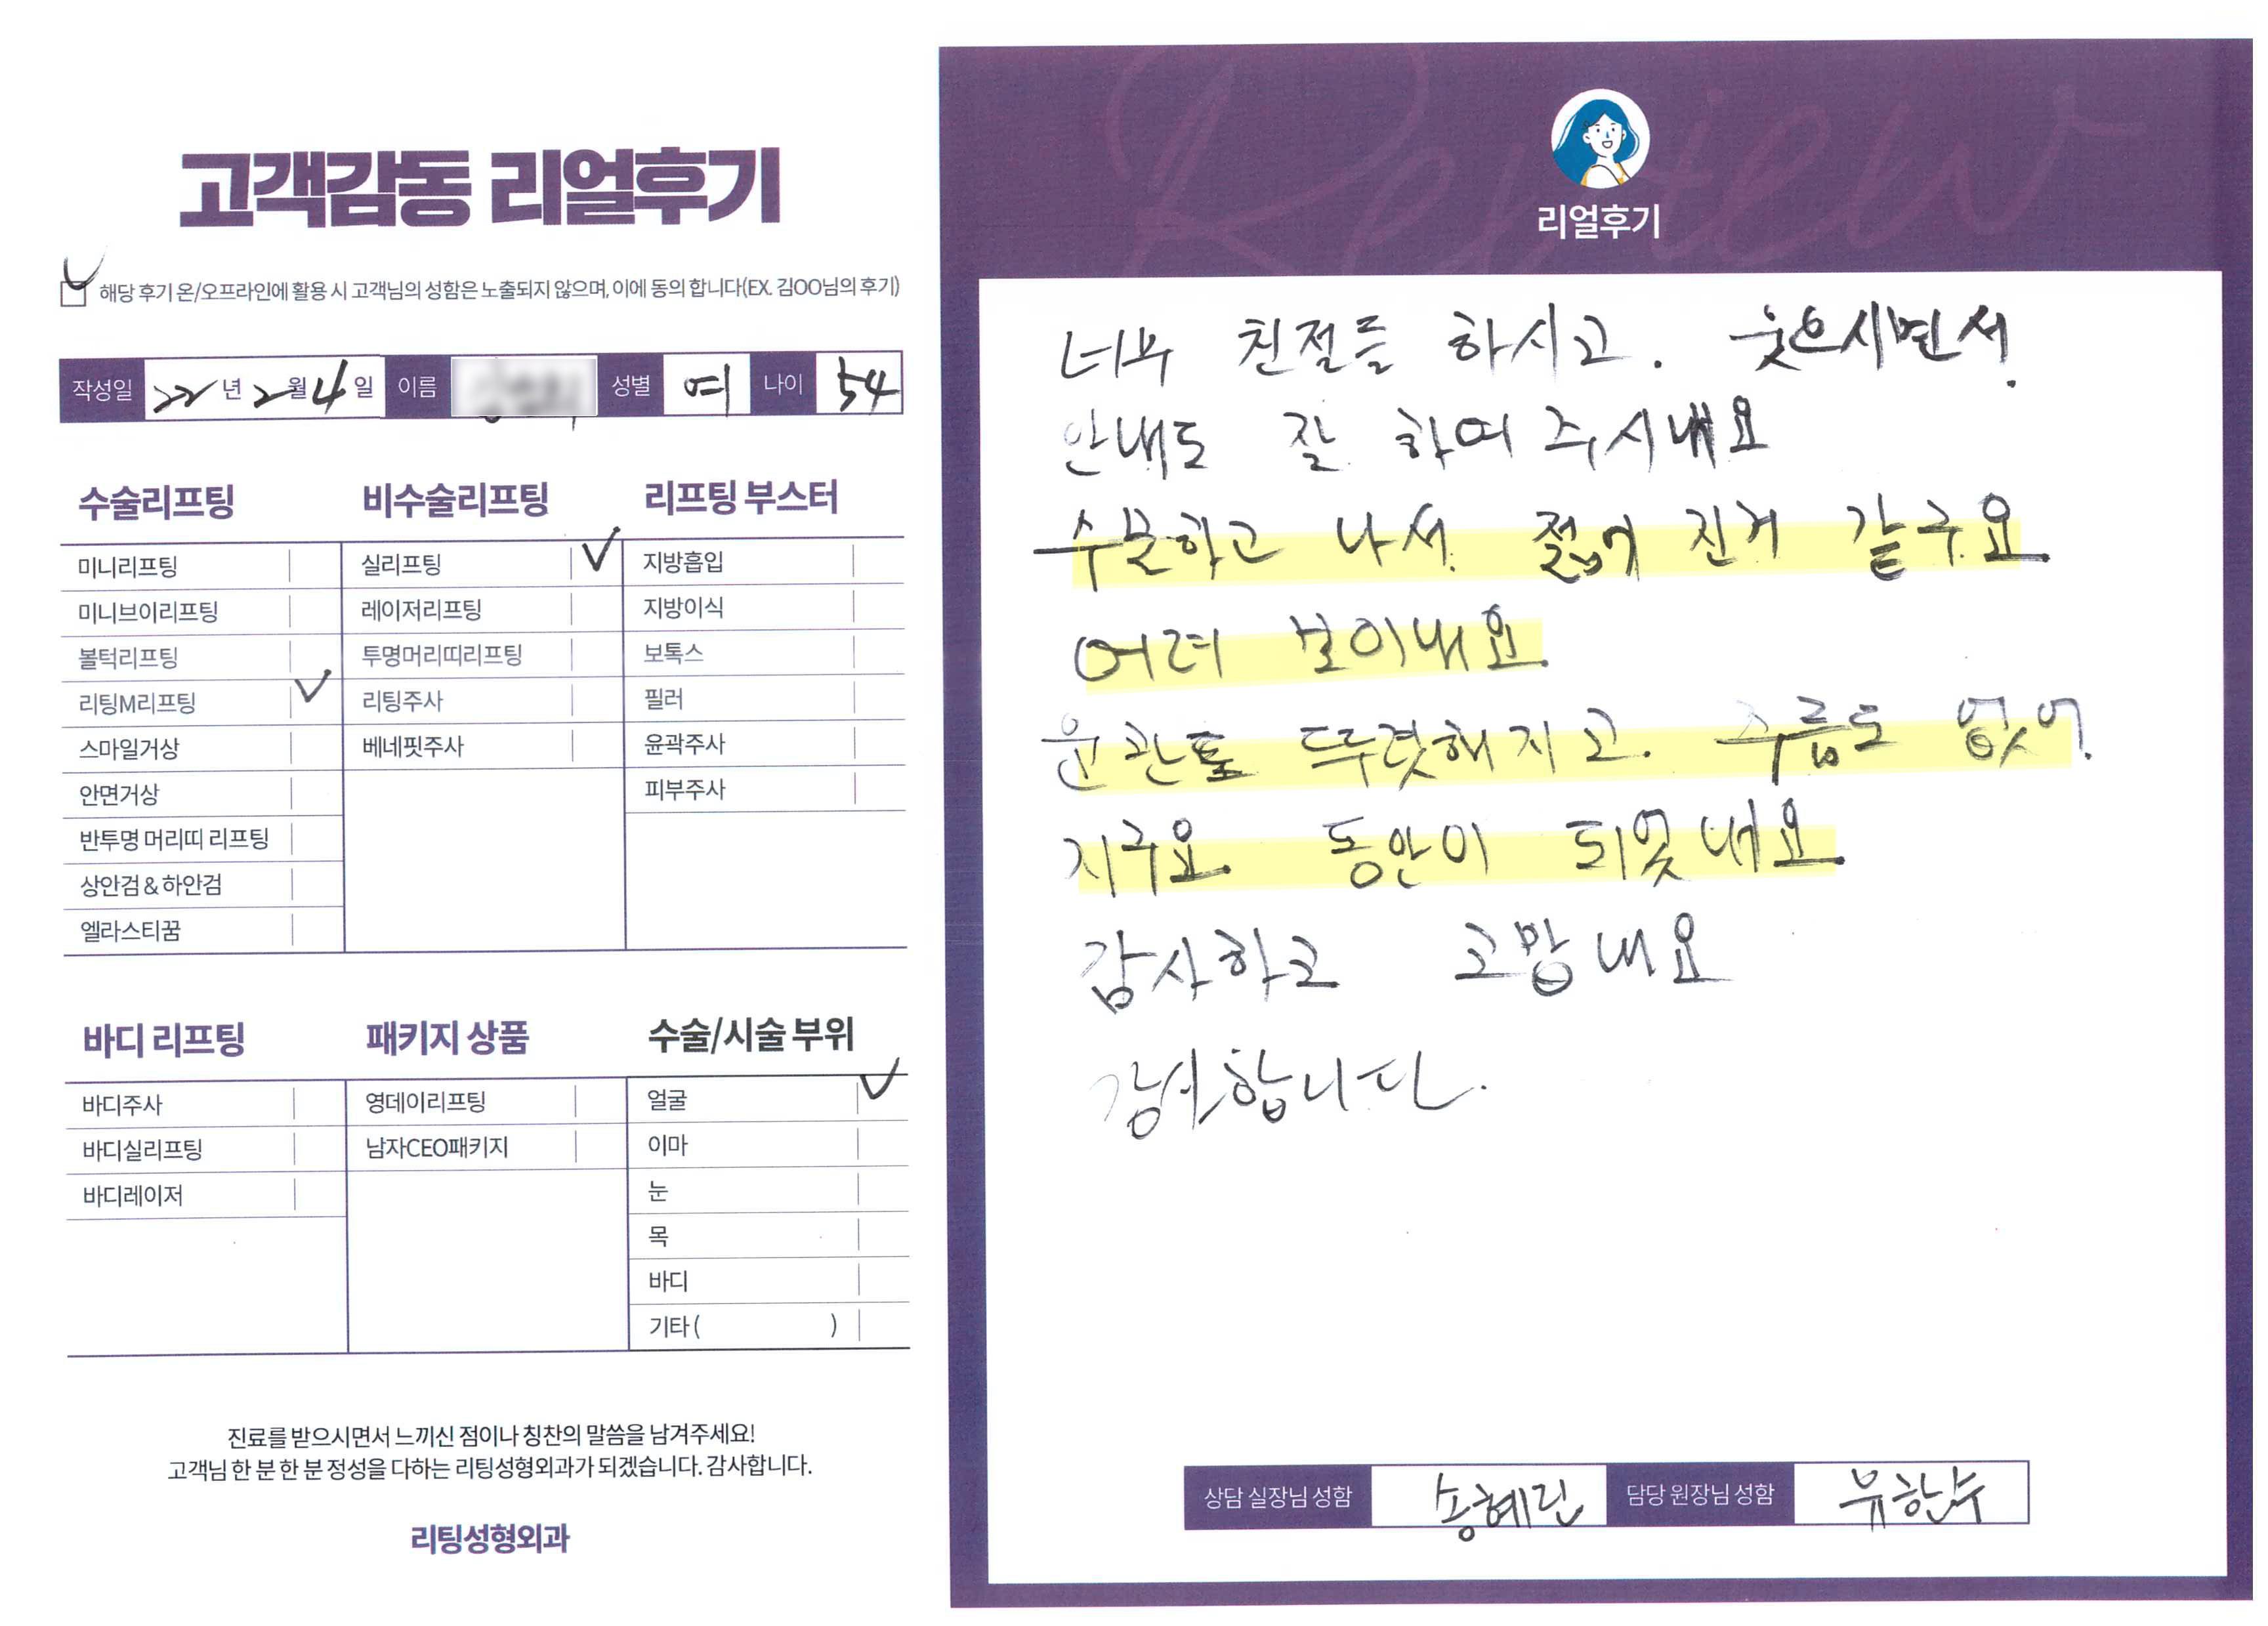 고객감동 리얼후기
해당 후기 온/오프라인에 활용 시 고객님의 성함은 노출되지 않으며, 이에 동의 합니다(EX. 김OO님의 후기)
작성일 22년 2월 4일 이름 성별 여 나이 54
수술리프팅 비수술리프팅 리프팅 부스터
미니리프팅 실리프팅 지방흡입
미니브이리프팅 레이저리프팅 지방이식
볼턱리프팅 투명머리띠리프팅 보톡스
리팅M리프팅 리팅주사 필러
스마일거상 베네핏주사 윤곽주사
안면거상 피부주사
반투명 머리띠 리프팅
상안검 & 하안검
엘라스티꿈
바디 리프팅 패키지 상품 수술/시술 부위
바디주사 영데이리프팅 얼굴
바디실리프팅 남자CEO패키지 이마
바디레이저 눈
목
바디
기타 ( )
진료를 받으시면서 느끼신 점이나 칭찬의 말씀을 남겨주세요!
고객님 한 분 한 분 정성을 다하는 리팅성형외과가 되겠습니다. 감사합니다.
리팅성형외과
Review
리얼후기
너무 친절들 하시고. 웃으시면서.
안내도 잘 하여 주시내요
수술하고 나서 젊어 진거 같구요
어려 보이내요.
윤곽도 뚜렷해지고. 주름도 없어
지구요. 동안이 되엇내요.
감사하고 고맙내요
감사합니다.
상담 실장님 성함 송혜린 담당 원장님 성함 유한수